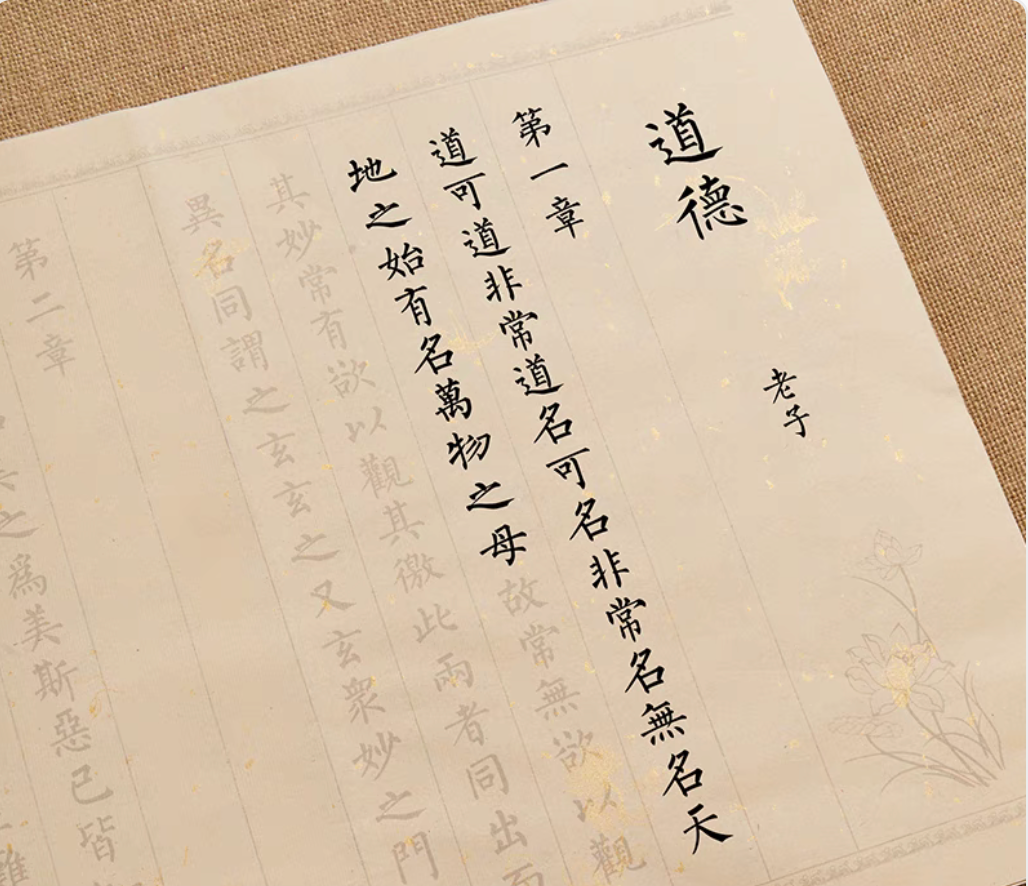 道德 老子
第一章
道可道非常道名可名非常名無名天
地之始有名萬物之母故常無欲以觀
其妙常有欲以觀其徼此兩者同出而
異名同謂之玄玄之又玄衆妙之門
第二章
之爲美斯惡已皆